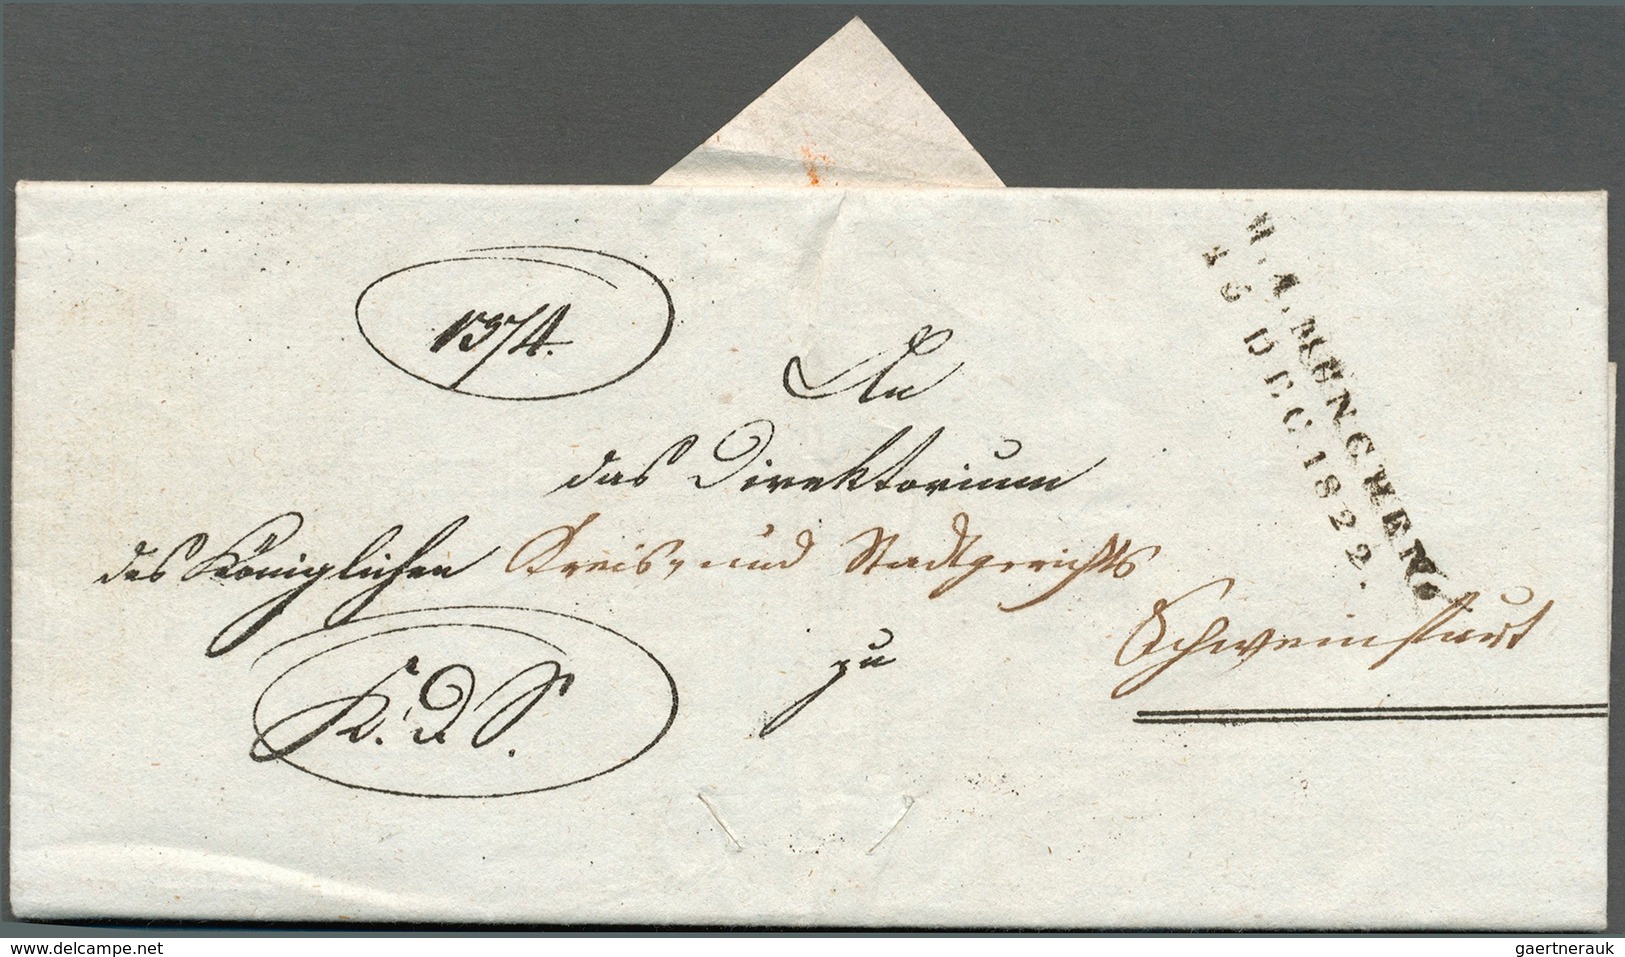 1374.
An
das Direktorium
des Königlichen Kreis- und Stadtgerichts
zu
Schweinfurt
K. d. S.
R.4.MÜNCHEN.
DEC.1822.
www.delcampe.net
gaertnerauk